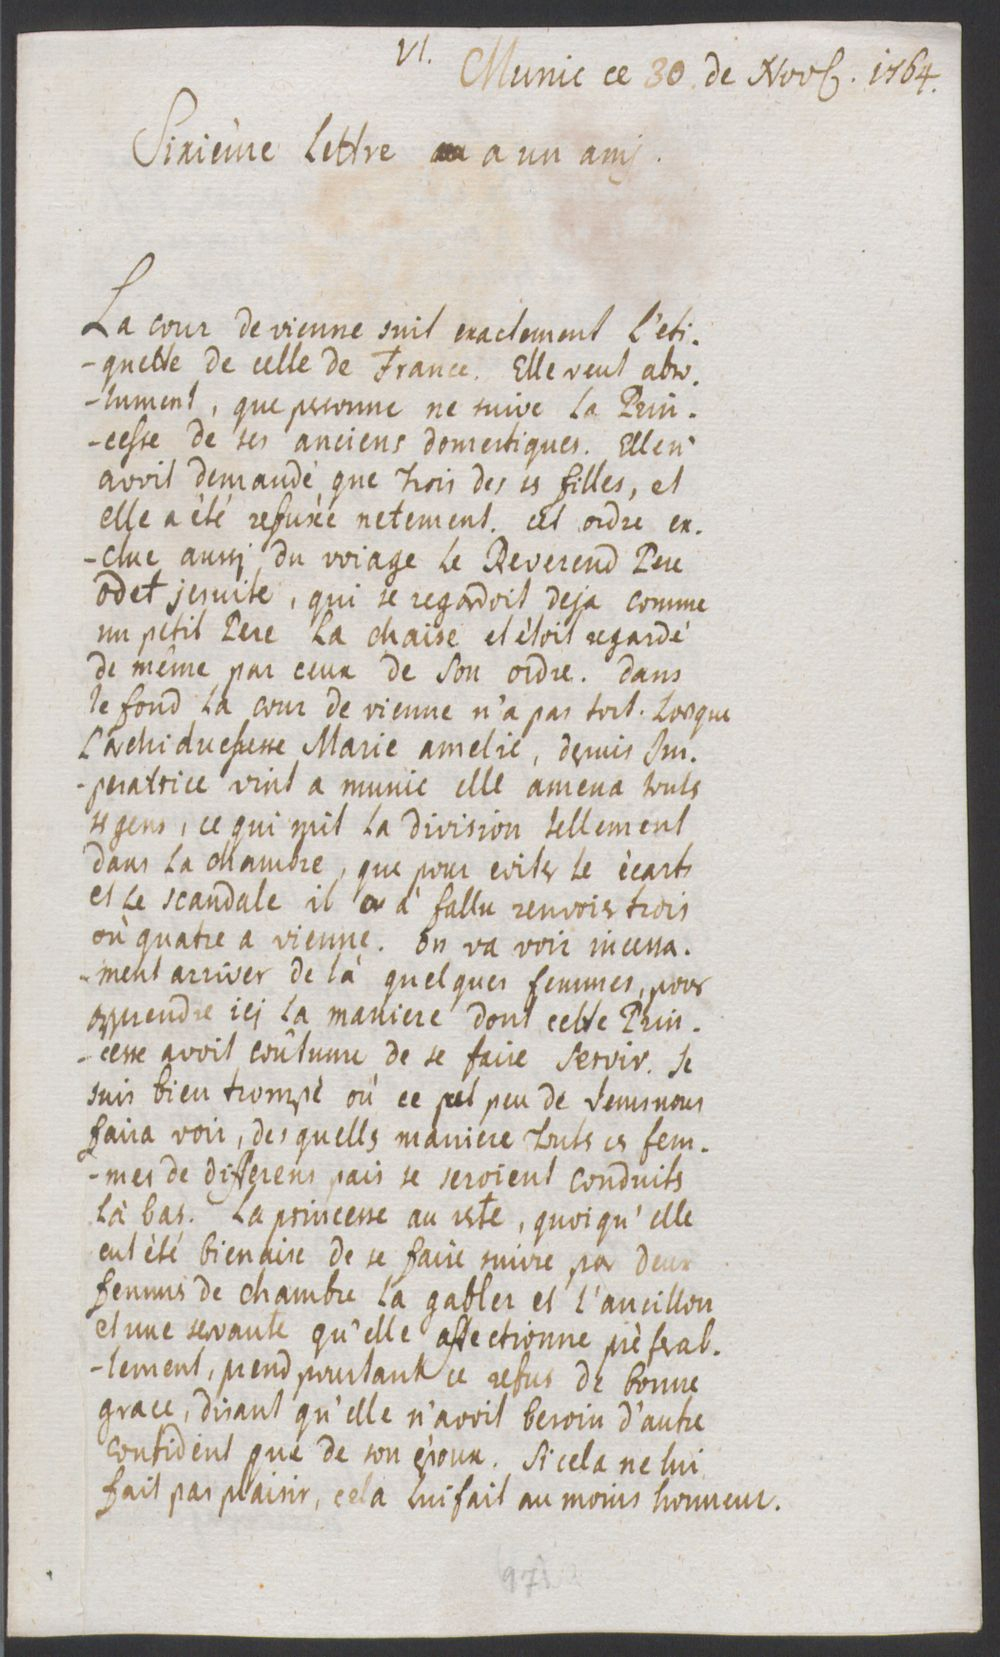 VI.
Munic ce 30. de Novb. 1764.
Sixième Lettre a un amj.
La cour de vienne suit exactement L'eti-
-quette de celle de France. Elle veut abso-
-lument, que personne ne suive La Prin-
-cesse de ses anciens domestiques. Elle n'
avoit demandé que trois de ses filles, et
elle a été refusée netement. cet ordre ex-
-clue aussj du voiage Le Reverend Pere
Odet jesuite, qui se regardoit deja comme
un petit Pere La chaise et étoit regardé
de même par ceux de Son ordre. Dans
le fond La cour de vienne n'a pas tort. Lorsque
L'archiduchesse Marie amelie, depuis Im-
-peratrice vint a munic elle amena touts
ses gens, ce qui mit La division tellement
dans La chambre, que pour eviter Le écarts
et Le scandale il a fallu renvoier trois
où quatre a vienne. on va voir incessa-
-ment arriver de là quelques femmes, pour
apprendre icj La maniere dont cette Prin-
-cesse avoit coûtume de se faire Servir. Je
suis bien trompé où ce peu de tems nous
faira voir, des quells maniere touts ces fem-
-mes de differens pais se seroient conduits
Là bas. La princesse au reste, quoiqu' elle
eut été bien aise de se faire suivre par deux
femms de chambre La gabler et L'ancillon
et une servante qu'elle affectionne préferab-
-lement, prend pourtant ce refus de bonne
grace, disant qu'elle n'avoit besoin d'autre
confident que de son époux. Si cela ne lui
fait pas plaisir, cela Lui fait au moins honneur.